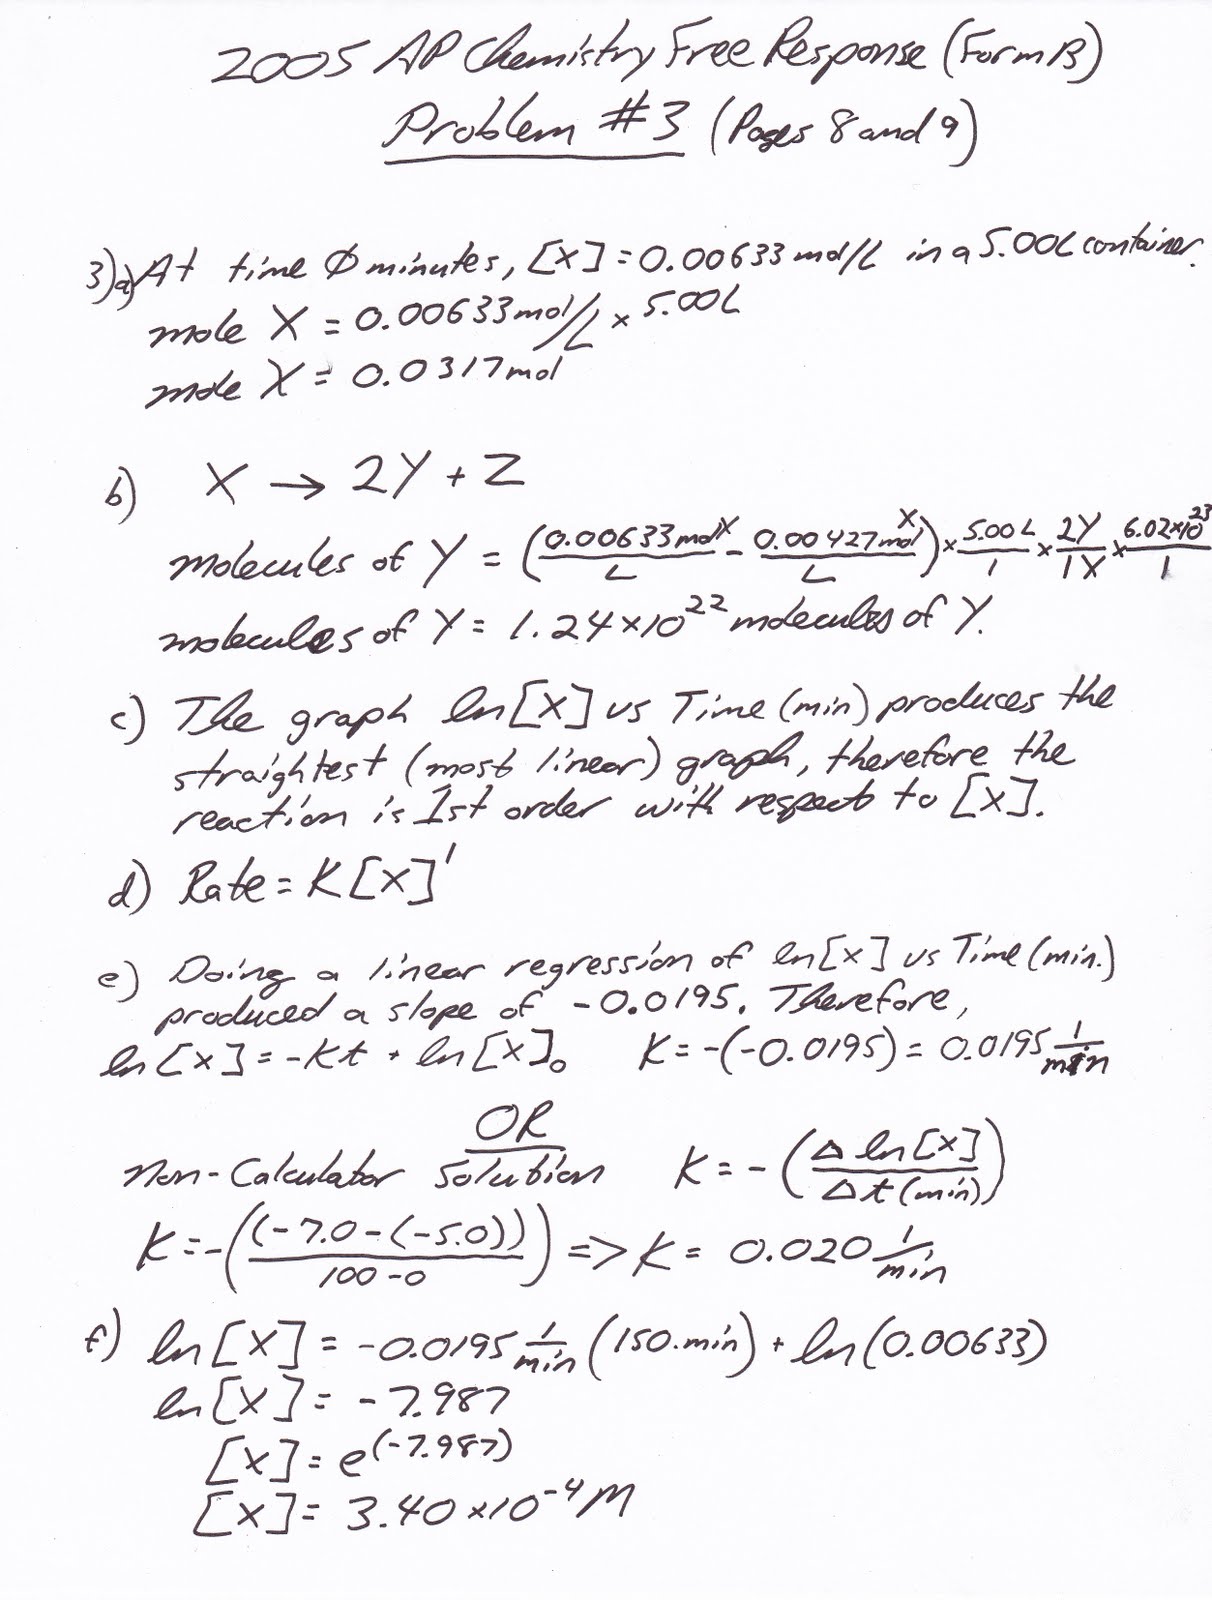 2005 AP Chemistry Free Response (Form B)
Problem #3 (Pages 8 and 9)
3)a) At time Ø minutes, [X] = 0.00633 mol/L in a 5.00L container.
mole X = 0.00633 mol/L × 5.00L
mole X = 0.0317 mol
b) X → 2Y + Z
molecules of Y = (0.00633 mol X/L - 0.00427 mol X/L) × 5.00L/1 × 2Y/1X × 6.02×10^23/1
molecules of Y = 1.24×10^22 molecules of Y.
c) The graph ln[X] vs Time (min) produces the
straightest (most linear) graph, therefore the
reaction is 1st order with respect to [X].
d) Rate = K[X]^1
e) Doing a linear regression of ln[X] vs Time (min.)
produced a slope of -0.0195. Therefore,
ln[X] = -Kt + ln[X]₀ K = -(-0.0195) = 0.0195 1/min
OR
Non-Calculator Solution K = -(Δ ln[X]/Δt (min))
K = -((-7.0-(-5.0))/100-0) => K = 0.020 1/min
f) ln[X] = -0.0195 1/min (150. min) + ln(0.00633)
ln[X] = -7.987
[X] = e^(-7.987)
[X] = 3.40 ×10^-4 M